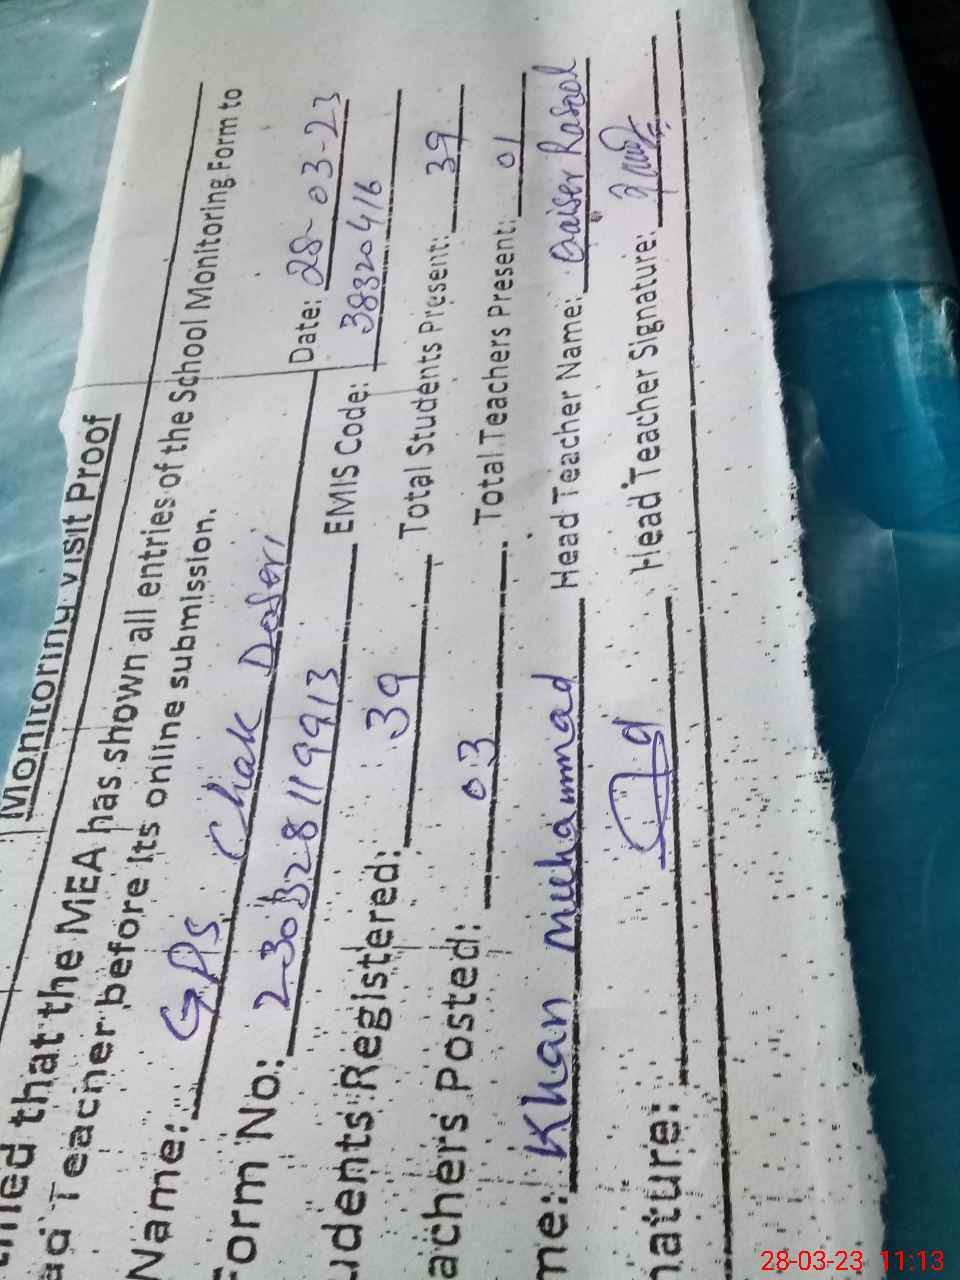 Monitoring Visit Proof
that the MEA has shown all entries of the School Monitoring Form to
Teacher before its online submission.
Name: GPS Chak Date: 28-03-23
Form No: 230B28119913 EMIS Code: 38320416
udents Registered: 39 Total Students Present: 39
achers Posted: 03 Total Teachers Present: 01
me: Khan Muhammad Head Teacher Name: Qaiser Rasool
nature: Head Teacher Signature:
28-03-23 11:13